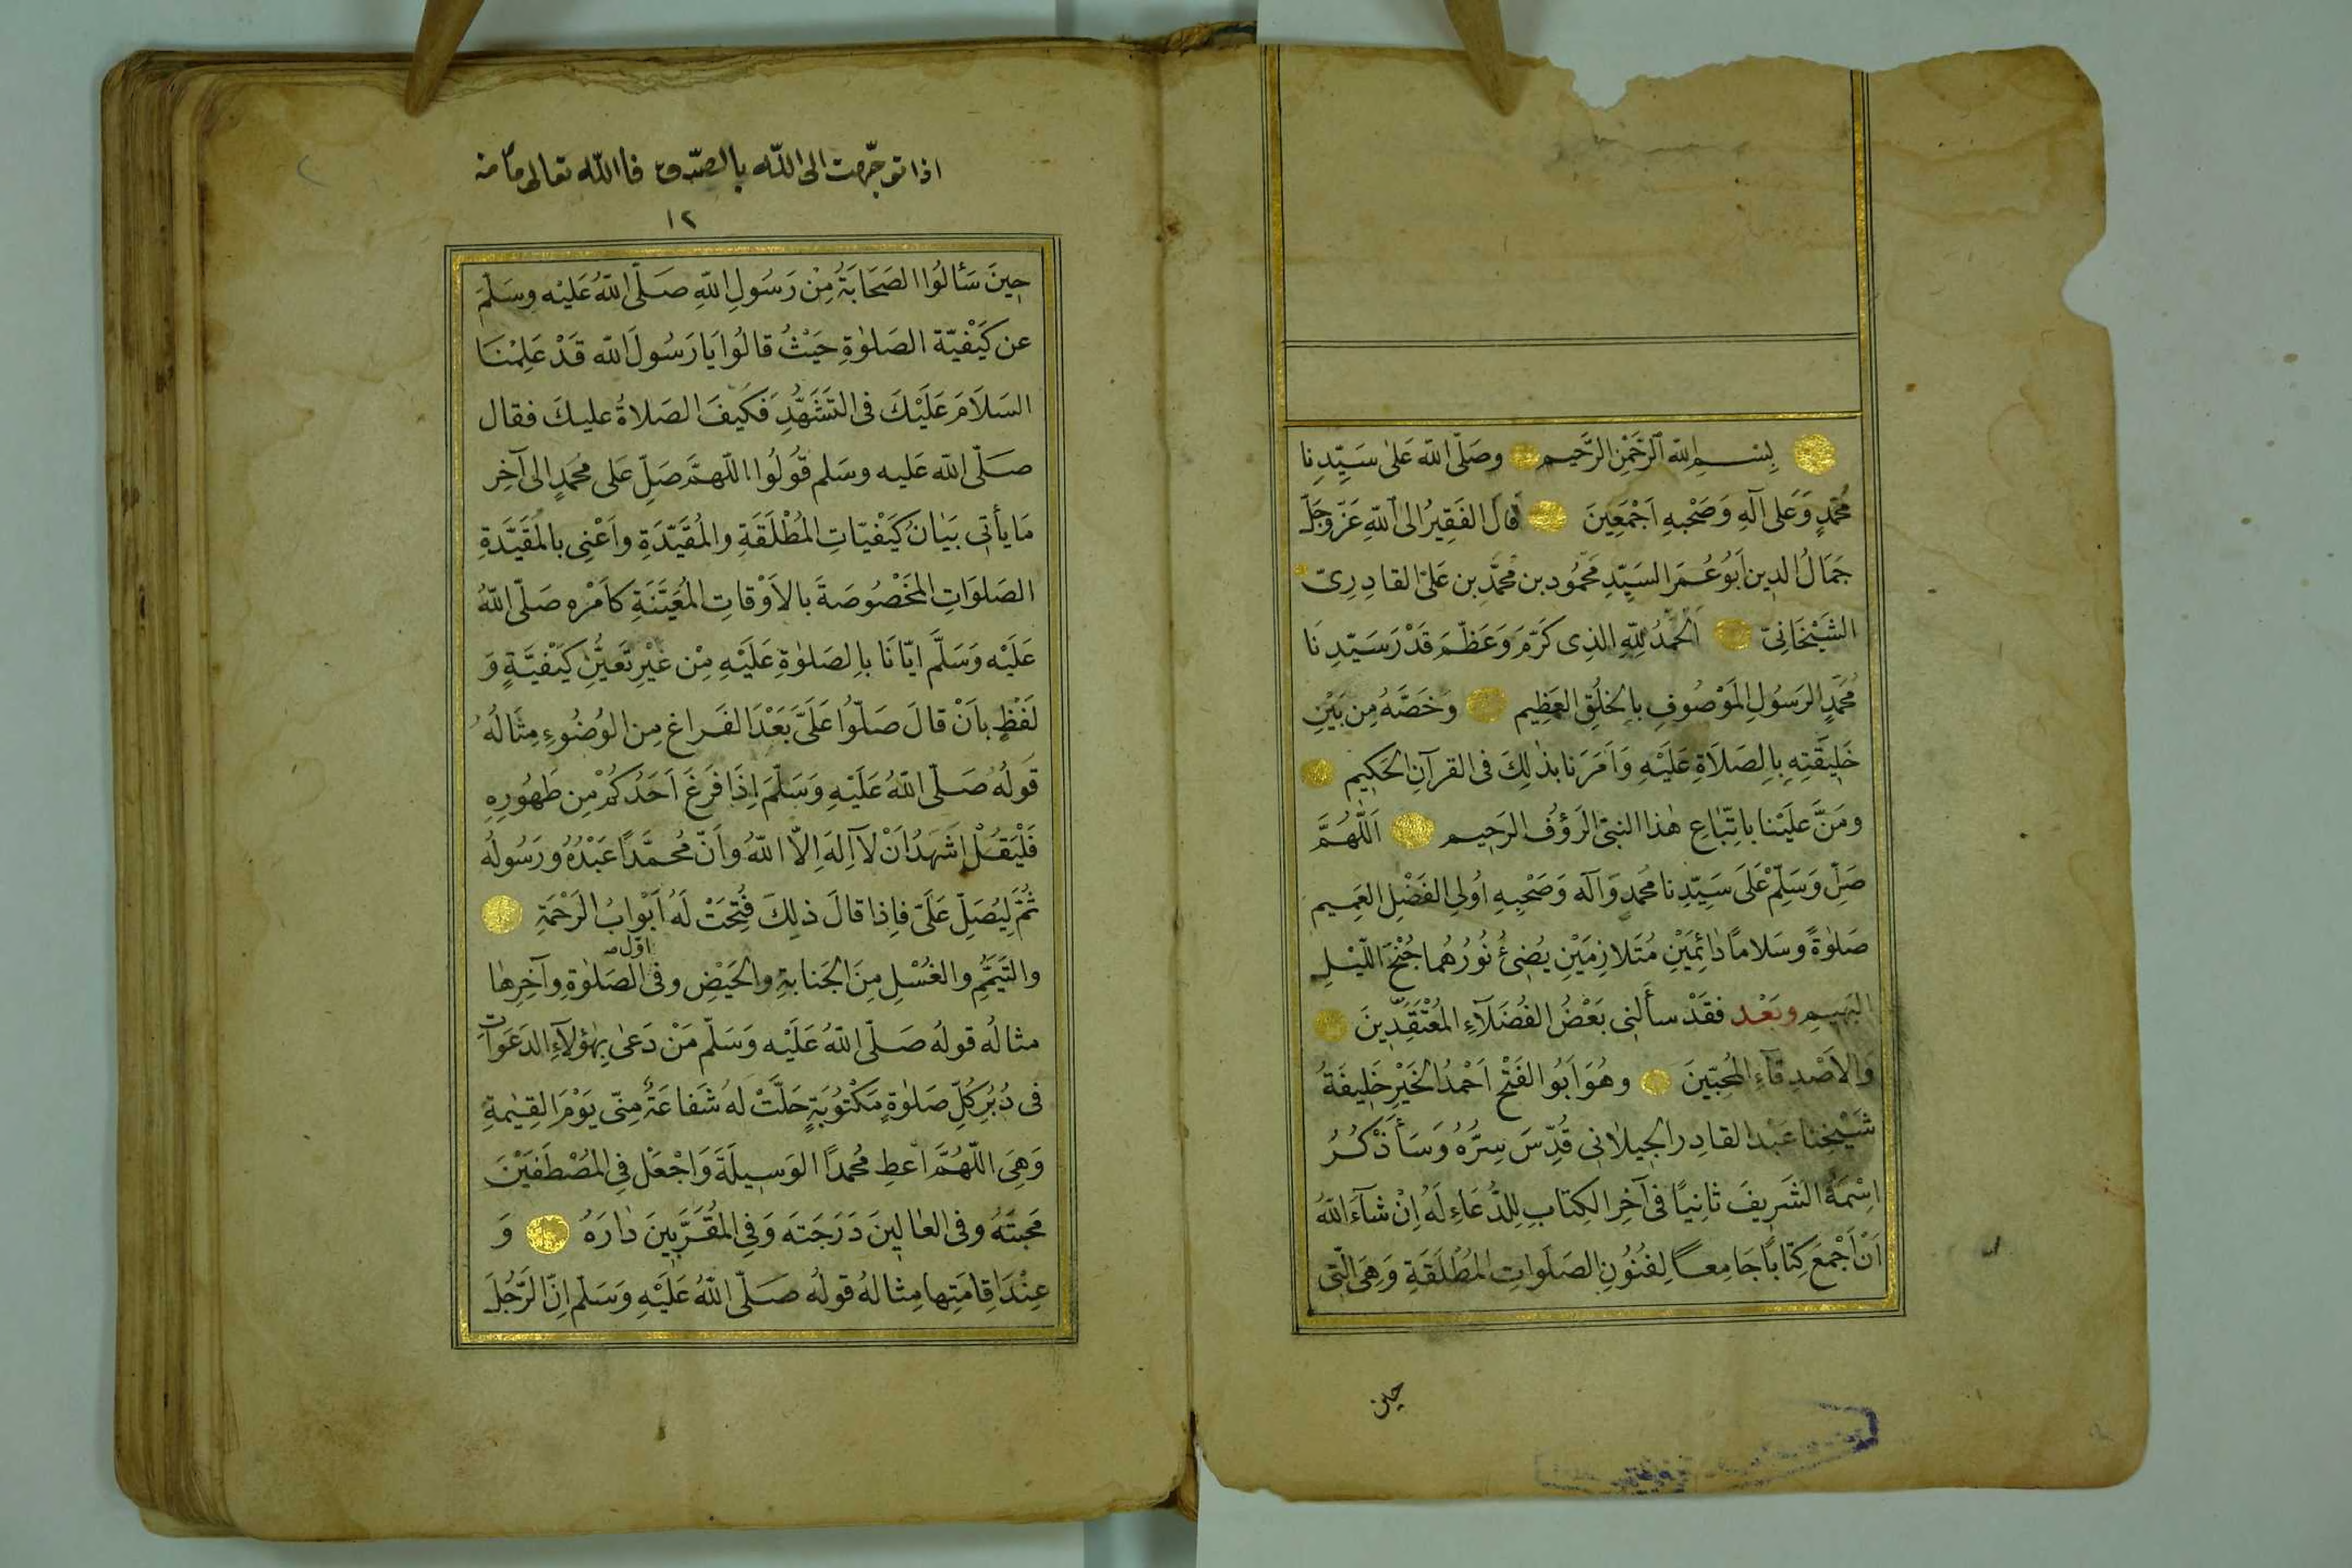 بِسْمِ اللّٰهِ الرَّحْمٰنِ الرَّحِيمِ وصَلَّى اللّٰه عَلٰى سَيِّدِنا
مُحَمَّدٍ وَعَلى آلِهِ وَصَحْبِهِ اَجْمَعِينَ قالَ الفَقِيرُ الى اللّٰهِ عَزَّ وَجَلَّ
جَمَالُ الدين اَبُو عُمَرَ السَيِّدِ مَحْمُود بن مُحَمَّدِ بن عَلىّ القادِرِىّ
الشَيْخَانِىّ اَلحَمْدُ لِلّٰهِ الذِى كَرَّمَ وَعَظَّمَ قَدْرَ سَيّدِنَا
مُحَمَّدٍ الرَسُولِ المَوْصُوفِ بِالخُلُقِ العَظِيم وَخَصَّهُ مِن بَيْنِ
خَلِيقَتِهِ بِالصَلَاةِ عَلَيْهِ وَاَمَرَنا بذٰلِكَ فى القرآنِ الحَكِيمِ
ومَنَّ عَلَيْنا باتِّبَاعِ هٰذا النبىّ الرَؤُفِ الرَحِيم اَللّٰهُمَّ
صَلِّ وَسَلِّمْ عَلىَ سَيِّدِنا مُحمدٍ وَآله وَصَحْبِهِ اُولىِ الفَضْلِ العَمِيم
صَلوٰةً وسَلامًا دٰائِمَيْنِ مُتَلازِمَيْنِ يُضِئُ نُورُهُما جُنْحَ اللَيْلِ
البَهِيمِ وبَعْد فقَدْ سأَلَنِى بَعْضُ الفُضَلآءِ المُعْتَقِدِينَ
وَالاَصْدِقآءِ المُحِبّينَ وهُوَ اَبُو الفَتْحِ اَحْمَدُ الخَيْرِ خَلِيفَةُ
شَيْخِنا عَبْد القادِر الجِيلاٰنِى قُدِّسَ سِرُّهُ وَسَأَذْكُرُ
اسْمَهُ الشَرِيفَ ثانِيًا فى آخِرِ الكِتَابِ لِلدُّعَاءِ لَهُ اِنْ شآءَ اللّٰهُ
اَنْ اَجْمَعَ كِتَابًا جَامِعًا لِفُنُونِ الصَلَواتِ المُطْلَقَةِ وَهِىَ الّتِى
حين
اذا توجّهت الى اللّٰه بالصّدق فاللّٰه تعالى
١٢
حِينَ سَأَلُوا الصَحَابَةُ مِنْ رَسُولِ اللّٰهِ صَلّى اللّٰهُ عَلَيْه وسَلَّمَ
عن كَيْفيّة الصَلوٰةِ حَيْثُ قالُوا يَا رَسُولَ اللّٰه قَدْ عَلِمْنَا
السَلاَمَ عَلَيْكَ فى التَشَهُّدِ فَكَيفَ الصَلاةُ عليكَ فقال
صَلّى اللّٰه عَليه وسَلم قُولُوا اللّٰهمَّ صَلِّ عَلى مُحَمدٍ الى آخِر
مَا يأتِى بَيَانُ كَيْفيّاتِ المُطْلَقَةِ والمُقَيَّدَةِ واَعْنِى بالمُقَيَّدَةِ
الصَلوَاتِ المَخْصُوصَةَ بالاَوْقاتِ المُعَيَّنَةِ كاَمْرِه صَلّى اللّٰهُ
عَلَيْه وَسَلَّم ايّانَا بالصَلوٰةِ عَلَيْهِ مِنْ غَيْرِ تَعَيُّنِ كَيْفيَّةٍ وَ
لَفْظٍ باَنْ قالَ صَلّوُا عَلَىَّ بَعْدَ الفَراغِ مِن الوُضُوءِ مِثَالُهُ
قَولُهُ صَلّى اللّٰهُ عَلَيْهِ وَسَلَّمَ اِذَا فَرَغَ اَحَدُكُمْ مِن طَهُورِهِ
فَلْيَقُلْ اَشْهَدُ اَنْ لآ اِلٰهَ اِلاّ اللّٰهُ واَنّ مُحمَّدًا عَبْدُهُ ورَسُولُه
ثُمَّ لِيُصَلِّ عَلَىَّ فاِذا قالَ ذٰلِكَ فُتِحَتْ لَهُ اَبْوابُ الرَحْمَةِ
اوّل صـ
والتَيَمُّمِ والغُسْلِ مِنَ الجَنابَةِ والحَيْضِ وفى الصَلوٰةِ وآخِرِهٰا
مثالُه قولُه صَلّى اللّٰهُ عَلَيْه وَسَلّم مَنْ دَعىٰ بِهٰؤلآءِ الدَعَوَات
فى دُبُرِ كُلّ صَلوٰةٍ مَكْتُوبَةٍ حَلَّتْ لهُ شَفاعَةٌ مِنّى يَوْمَ القِيٰمةِ
وَهِىَ اللّٰهُمَّ اَعْطِ مُحمدًا الوَسِيلَةَ وَاجْعَلْ فِى المُصْطَفَيْنَ
مَحبتَهُ وفى العٰالِينَ دَرَجَتَه وَفِى المُقَرَّبِينَ دٰارَهُ وَ
عِنْدَ اِقامَتِها مِثالهُ قولُه صَلّى اللّٰهُ عَلَيْهِ وَسَلّم اِنّ الرَّجُلَ